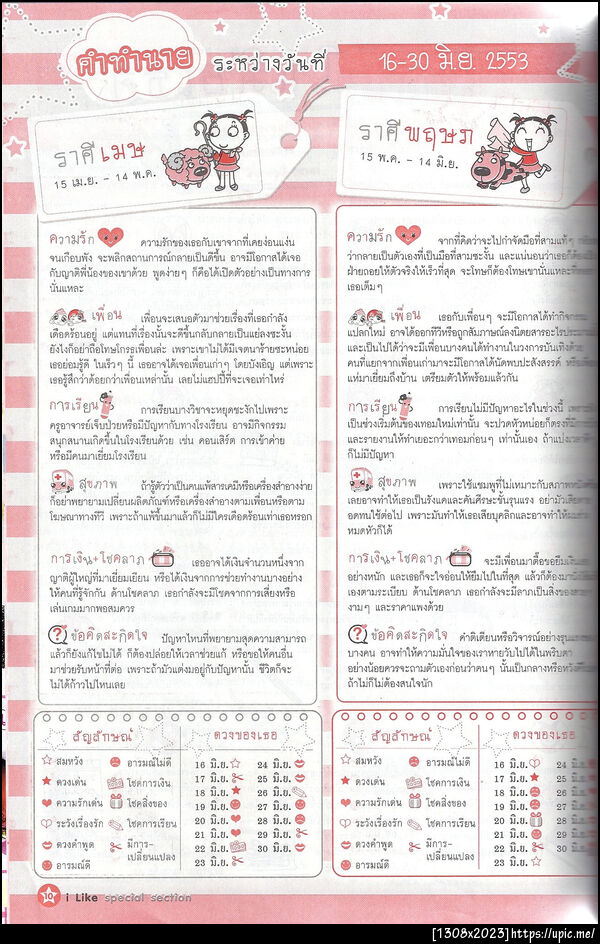 คำทำนาย ระหว่างวันที่ 16-30 มิ.ย. 2553
ราศีเมษ
15 เม.ย. - 14 พ.ค.
ความรัก ความรักของเธอกับเขาจากที่เคยง่อนแง่น
จนเกือบพัง จะพลิกสถานการณ์กลายเป็นดีขึ้น อาจมีโอกาสได้เจอ
กับญาติพี่น้องของเขาด้วย พูดง่ายๆ ก็คือได้เปิดตัวอย่างเป็นทางการ
นั่นแหละ
เพื่อน เพื่อนจะเสนอตัวมาช่วยเรื่องที่เธอกำลัง
เดือดร้อนอยู่ แต่แทนที่เรื่องนั้นจะดีขึ้นกลับกลายเป็นแย่ลงซะงั้น
ยังไงก็อย่าถือโทษโกรธเพื่อนล่ะ เพราะเขาไม่ได้มีเจตนาร้ายซะหน่อย
เธอย่อมรู้ดี ในเร็วๆ นี้ เธออาจได้เจอเพื่อนเก่าๆ โดยบังเอิญ แต่เพราะ
เธอรู้สึกว่าด้อยกว่าเพื่อนเหล่านั้น เลยไม่แฮปปี้ที่จะเจอเท่าไหร่
การเรียน การเรียนบางวิชาจะหยุดชะงักไปเพราะ
ครูอาจารย์เจ็บป่วยหรือมีปัญหากับทางโรงเรียน อาจมีกิจกรรม
สนุกสนานเกิดขึ้นในโรงเรียนด้วย เช่น คอนเสิร์ต การเข้าค่าย
หรือมีคนมาเยี่ยมโรงเรียน
สุขภาพ ถ้ารู้ตัวว่าเป็นคนแพ้สารเคมีหรือเครื่องสำอางง่าย
ก็อย่าพยายามเปลี่ยนผลิตภัณฑ์หรือเครื่องสำอางตามเพื่อนหรือตาม
โฆษณาทางทีวี เพราะถ้าแพ้ขึ้นมาแล้วก็ไม่มีใครเดือดร้อนเท่าเธอหรอก
การเงิน+โชคลาภ เธออาจได้เงินจำนวนหนึ่งจาก
ญาติผู้ใหญ่ที่มาเยี่ยมเยียน หรือได้เงินจากการช่วยทำงานบางอย่าง
ให้คนที่รู้จักกัน ด้านโชคลาภ เธอกำลังจะมีโชคจากการเสี่ยงหรือ
เล่นเกมมากพอสมควร
ข้อคิดสะกิดใจ ปัญหาไหนที่พยายามสุดความสามารถ
แล้วก็ยังแก้ไขไม่ได้ ก็ต้องปล่อยให้เวลาช่วยแก้ หรือขอให้คนอื่น
มาช่วยรับหน้าที่ต่อ เพราะถ้ามัวแต่งมอยู่กับปัญหานั้น ชีวิตก็จะ
ไม่ได้ก้าวไปไหนเลย
สัญลักษณ์
สมหวัง อารมณ์ไม่ดี
ดวงเด่น โชคการเงิน
ความรักเด่น โชคสิ่งของ
ระวังเรื่องรัก โชคการเรียน
ดวงคำพูด มีการ-
เปลี่ยนแปลง
อารมณ์ดี
ดวงของเธอ
16 มิ.ย. 24 มิ.ย.
17 มิ.ย. 25 มิ.ย.
18 มิ.ย. 26 มิ.ย.
19 มิ.ย. 27 มิ.ย.
20 มิ.ย. 28 มิ.ย.
21 มิ.ย. 29 มิ.ย.
22 มิ.ย. 30 มิ.ย.
23 มิ.ย.
ราศีพฤษภ
15 พ.ค. - 14 มิ.ย.
ความรัก จากที่คิดว่าจะไปกำจัดมือที่สามแท้ๆ
ว่ากลายเป็นตัวเองที่เป็นมือที่สามซะงั้น และแน่นอนว่าเธอก็ต้อง
ฝ่ายถอยให้ตัวจริงให้เร็วที่สุด จะโทษก็ต้องโทษเขานั่นแหละ
เธอเต็มๆ
เพื่อน เธอกับเพื่อนๆ จะมีโอกาสได้ทำกิจกรรม
แปลกใหม่ อาจได้ออกทีวีหรือถูกสัมภาษณ์ลงนิตยสารอะไร
และเป็นไปได้ว่าจะมีเพื่อนบางคนได้ทำงานในวงการบันเทิงด้วย
คนที่แยกจากเพื่อนเก่ามาจะมีโอกาสได้นัดพบปะสังสรรค์
แห่มาเยี่ยมถึงบ้าน เตรียมตัวให้พร้อมแล้วกัน
การเรียน การเรียนไม่มีปัญหาอะไรในช่วงนี้
เป็นช่วงเริ่มต้นของเทอมใหม่เท่านั้น จะปวดหัวหน่อยก็ตรงที่มี
และรายงานให้ทำเยอะกว่าเทอมก่อนๆ เท่านั้นเอง ถ้าแบ่งเวลา
ก็ไม่มีปัญหา
สุขภาพ เพราะใช้แชมพูที่ไม่เหมาะกับสภาพ
เลยอาจทำให้เธอเป็นรังแคและคันศีรษะขั้นรุนแรง อย่ามัว
อดทนใช้ต่อไป เพราะมันทำให้เธอเสียบุคลิกและอาจทำให้
หมดหัวก็ได้
การเงิน+โชคลาภ จะมีเพื่อนมาตื๊อขอยืมเงิน
อย่างหนัก และเธอก็จะใจอ่อนให้ยืมไปในที่สุด แล้วก็ต้องมา
เองตามระเบียบ ด้านโชคลาภ เธอกำลังจะมีลาภเป็นสิ่งของ
งามๆ และราคาแพงด้วย
ข้อคิดสะกิดใจ คำติเตียนหรือวิจารณ์อย่างรุนแรง
บางคน อาจทำให้ความมั่นใจของเราหายวับไปได้ในพริบตา
อย่างน้อยควรจะถามตัวเองก่อนว่าคนๆ นั้นเป็นกลางหรือ
ถ้าไม่ก็ไม่ต้องสนใจนัก
สัญลักษณ์
สมหวัง อารมณ์ไม่ดี
ดวงเด่น โชคการเงิน
ความรักเด่น โชคสิ่งของ
ระวังเรื่องรัก โชคการเรียน
ดวงคำพูด มีการ-
เปลี่ยนแปลง
อารมณ์ดี
ดวงของเธอ
16 มิ.ย. 24 มิ.ย.
17 มิ.ย. 25 มิ.ย.
18 มิ.ย. 26 มิ.ย.
19 มิ.ย. 27 มิ.ย.
20 มิ.ย. 28 มิ.ย.
21 มิ.ย. 29 มิ.ย.
22 มิ.ย. 30 มิ.ย.
23 มิ.ย.
10 i Like special section
[1308x2023]https://upic.me/